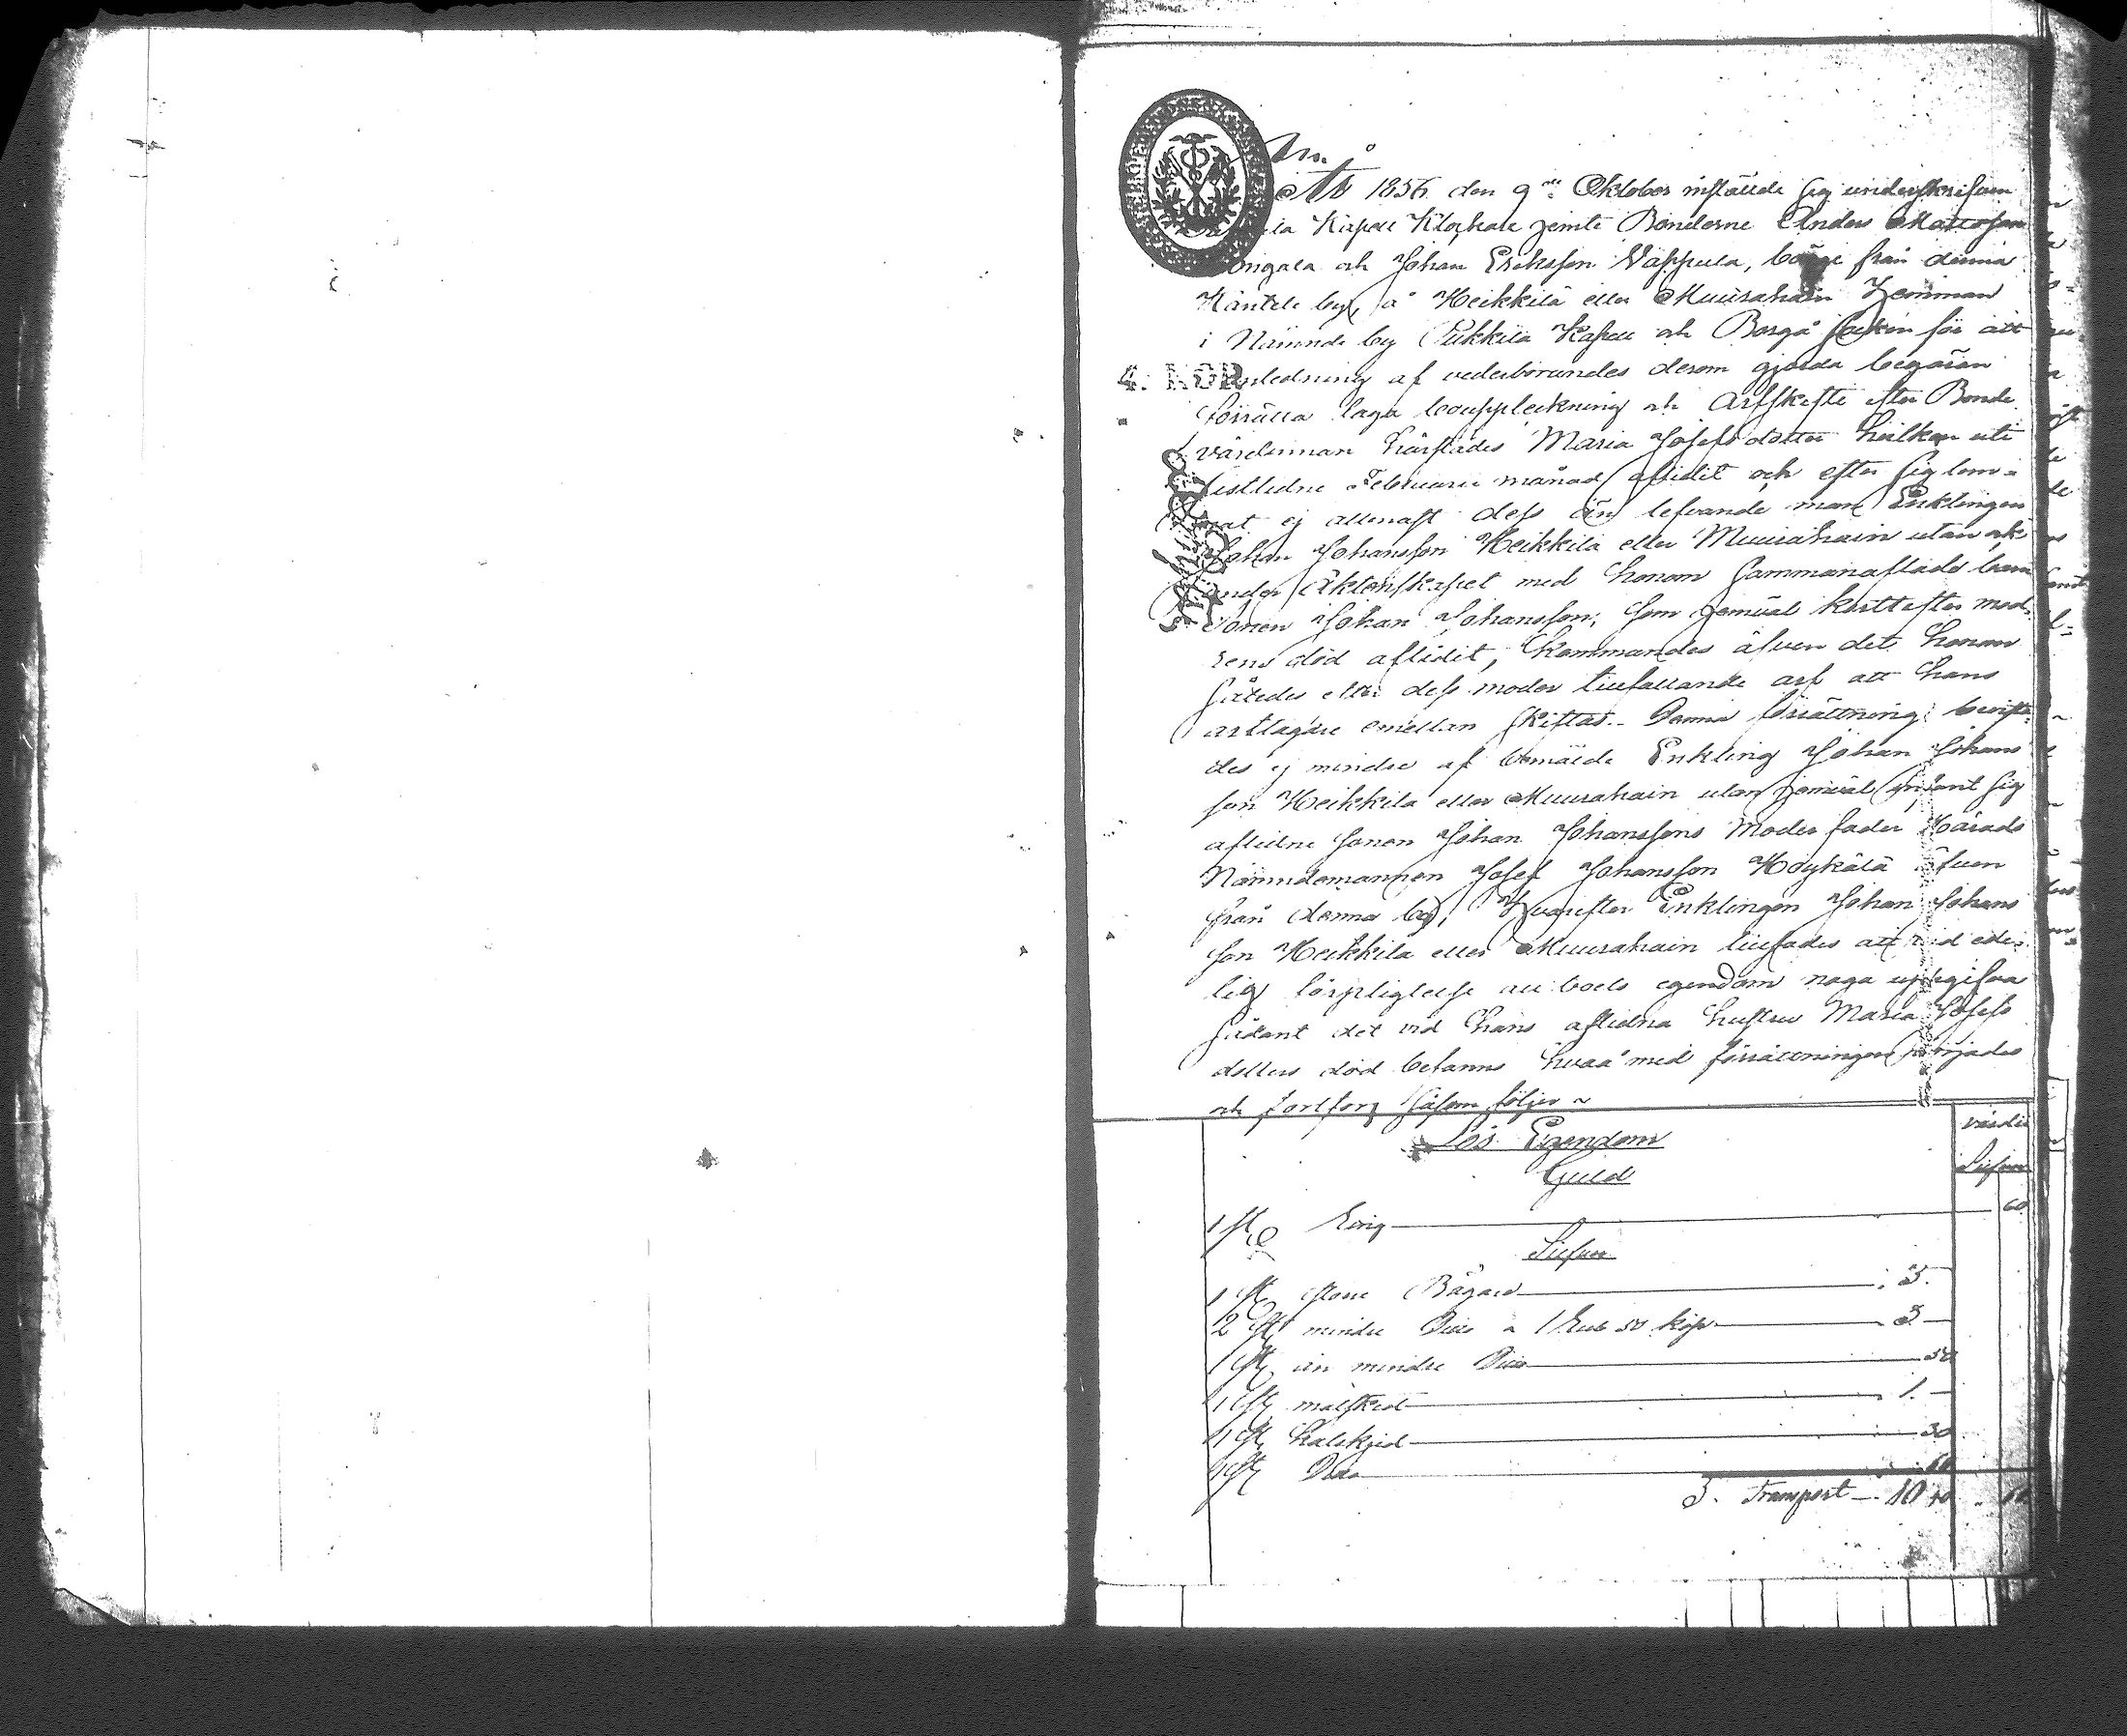 År 1856 den 9de Oktober inställde sig underskrifven
Kapell Klockare jemte Bönderne Anders Mattsson
och Johan Eriksson Vappula, både från denna
Käntele by, å Heikkilä eller Muurahain Hemman
i Nämnde by Pukkila Kapell och Borgå Socken för att
4. KOP. anledning af vederbörandes derom gjorda begäran
förrätta laga bouppteckning och Arfskifte efter Bonde
värdinnan härstädes Maria Josefsdotter hvilken uti
sistledne Februarii månad aflidit och efter sig lem-
nat ej allenast dess än lefvande man Enklingen
Johan Johansson Heikkilä eller Muurahain utan ock
under Äktenskapet med honom sammanaflade barn
Sonen Johan Johansson, som jemväl kort efter mod-
rens död aflidit, kommandes äfven det honom
således efter dess moder tillfallande arf att hans
arftagare emellan skiftas. Denna förrättning bevista-
des ej mindre af bemälde Enkling Johan Johans
son Heikkilä eller Muurahain utan jemväl
aflidne sonen Johan Johanssons Moder fader Härads
Nämndemannen Josef Johansson Höykälä äfven
från denna by, Hvarefter Enklingen Johan Johans
son Heikkilä eller Muurahain tillsades att vid ede-
lig förpligtelse all boets egendom noga uppgifva
sådant det vid hans aflidna hustru Maria Josefs
dotters död befanns hvaå med förrättningen börjades
och fortfors såsom följer
Lös Egendom
Guld
Silfver
1 st Ring 60
Silfver
1 st större Bägare 5.
2 st mindre Dito a 1 Rub 50 kop 3
1 st än mindre Dito 50
1 st matsked 1.
1 st kalksked 30
1 st Dito 60
Transport 10 40 60